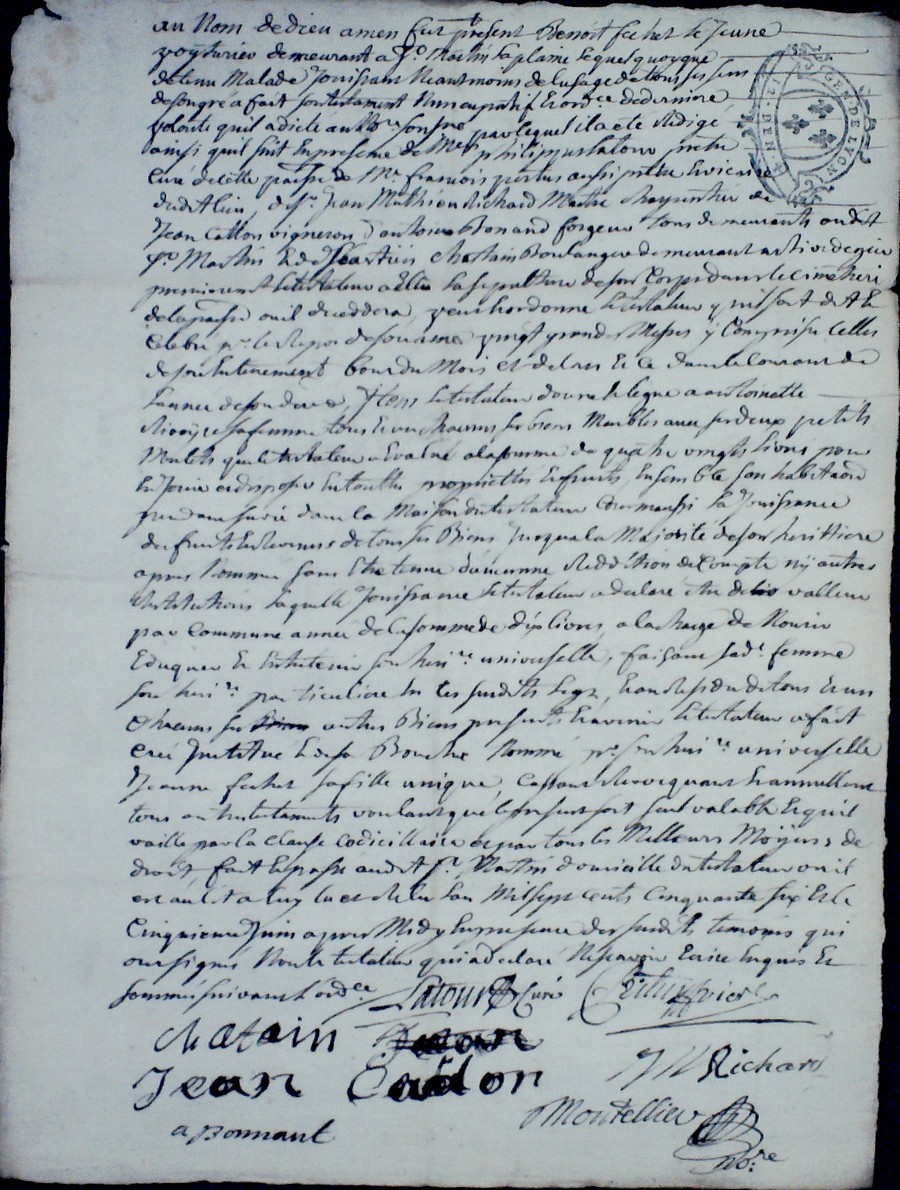 au Nom de dieu amen fut present Benoit fechet le Jeune
voyturier demeurant a St Martin la plaine lequel quoyque
detenu Malade Jouissant Neantmoins de l usage de tous ses sens
de son gré a fait son testament Nuncupatif et ordce de derniere
volonté quil a dicté au Nore par lequel il a eté Redigé
ainsi quil suit En presence de Me philippus latour pretre
Curé de cette paroisse de Mr francois pretre Et vicaire
dudit lieu, de Sr Jean Mathieu Richard Maitre Charpentier de
Jean Caddon vigneron d'antoine Bonand forgeur tous demeurants audit
St Martin Et de Chatain Boulanger demeurant a Rive de gier
premierement le testateur a Elu la sepulture de son Corps dans le cimetiere
de la paroisse ou il decedera, veut Et ordonne le testateur quil soit dit Et
Celebré pr le Repos de son ame vingt grandes Messes y Comprise Celles
de son Enterrement bout du Mois et de l'an Et Ce dans le Courant de
l'année de son deces Item le testateur donne Et legue a antoinette
sa femme tous Et un Chacuns ses biens Meubles avec ses deux petits
Mulets que le testateur a Evalué a la somme de quatre vingts livres pour
En Jouir et disposer En toutte proprieté Et fruits, Ensemble son habitation
sa vie dans la Maison du testateur Comm'aussi la Jouissance
des fruits Et Revenus de tous ses Biens Jusqu'a la Majorité de son heritiere
apres Nommée sans Etre tenue d'aucunne Reddition de Compte ny autres
Restitutions laquelle Jouissance le testateur a declaré etre de valleur
par Commune année de la somme de dix livres, a la charge de Nourir
Eduquer Et Entretenir son heritre universelle, faisant sadte femme
son heritre particuliere En les susdits legs, Et au Residu de tous Et un
Chacuns ses autres Biens presents Et avenir le testateur a fait
Créé Institué Et de sa Bouche Nommé pr son heritre universelle
Jeanne fechet sa fille unique, Cassant Revocquant Et annullant
tous autres testaments voulant que le present soit seul valable Et quil
vaille par la clause Codicillaire et par tous les Meilleurs Moyens de
droit fait Et passé audit St Martin domicille du testateur ou il
est au lit a luy lu et Relu l'an Mil sept cents Cinquante six Et le
Cinquieme Juin apres Midy En presence des susdits temoins qui
ont signés Non le testateur qui a declaré Ne scavoir Ecrire Enquis Et
sommé suivant l'ordce
Latour Curé
Chatain
Jean Cadon
JM Richard
a Bonnant
Montellier
Nore
GEN DE LYON